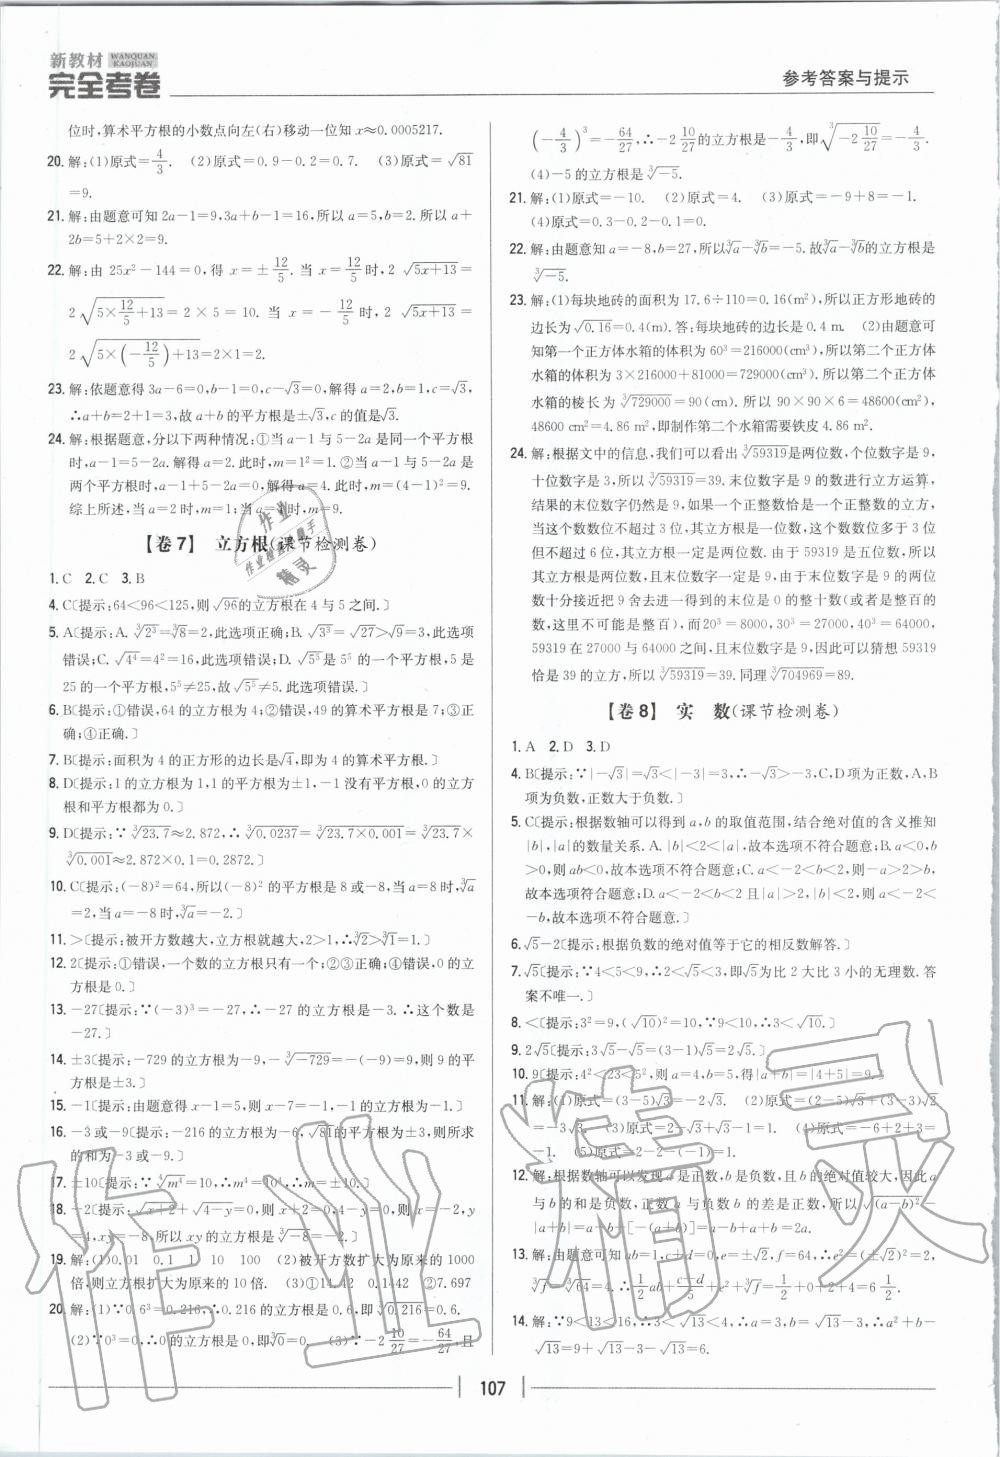 新教材 WANQUAN KAOJUAN
完全考卷
参考答案与提示
位时,算术平方根的小数点向左(右)移动一位知 x≈0.0005217.
20. 解:(1)原式=4/3. (2)原式=0.9-0.2=0.7. (3)原式=√81
=9.
21. 解:由题意可知 2a-1=9,3a+b-1=16,所以 a=5,b=2. 所以 a+
2b=5+2×2=9.
22. 解:由 25x²-144=0,得 x=±12/5. 当 x=12/5 时,2√(5x+13)=
2√(5×12/5+13)=2×5=10. 当 x=-12/5 时,2√(5x+13)=
2√(5×(-12/5)+13)=2×1=2.
23. 解:依题意得 3a-6=0,b-1=0,c-√3=0,解得 a=2,b=1,c=√3,
∴a+b=2+1=3,故 a+b 的平方根是±√3,c 的值是√3.
24. 解:根据题意,分以下两种情况:①当 a-1 与 5-2a 是同一个平方根
时,a-1=5-2a. 解得 a=2. 此时,m=1²=1. ②当 a-1 与 5-2a 是
两个平方根时,a-1+5-2a=0,解得 a=4. 此时,m=(4-1)²=9.
综上所述,当 a=2 时,m=1;当 a=4 时,m=9.
【卷 7】 立方根(课节检测卷)
1. C 2. C 3. B
4. C〔提示:64<96<125,则 ∛96的立方根在 4 与 5 之间.〕
5. A〔提示:A. ∛2³=∛8=2,此选项正确;B. √3³=√27>√9=3,此选项
错误;C. √4⁴=4²=16,此选项错误;D. √5⁵是 5⁵ 的一个平方根,5 是
25 的一个平方根,5⁵≠25,故√5⁵≠5. 此选项错误.〕
6. B〔提示:①错误,64 的立方根为 4;②错误,49 的算术平方根是 7;③正
确;④正确.〕
7. B〔提示:面积为 4 的正方形的边长是√4,即为 4 的算术平方根.〕
8. D〔提示:1 的立方根为 1,1 的平方根为±1,-1 没有平方根,0 的立方
根和平方根都为 0.〕
9. D〔提示:∵∛23.7≈2.872,∴∛0.0237=∛(23.7×0.001)=∛23.7×
∛0.001≈2.872×0.1=0.2872.〕
10. C〔提示:(-8)²=64,所以(-8)² 的平方根是 8 或-8,当 a=8 时,∛a
=2,当 a=-8 时,∛a=-2.〕
11. >〔提示:被开方数越大,立方根就越大,2>1,∴∛2>∛1=1.〕
12. 2〔提示:①错误,一个数的立方根只有一个;②③正确;④错误,0 的立
方根是 0.〕
13. -27〔提示:∵(-3)³=-27,∴-27 的立方根是-3. ∴这个数是
-27.〕
14. ±3〔提示:-729 的立方根为-9,-∛-729=-(-9)=9,则 9 的平
方根是±3.〕
15. -1〔提示:由题意得 x-1=5,则 x-7=-1,-1 的立方根为-1.〕
16. -3 或-9〔提示:-216 的立方根为-6,√81的平方根为±3,则所求
的和为-3 或-9.〕
17. ±10〔提示:∵∜m⁴=10,∴m⁴=10⁴,∴m=±10.〕
18. -2〔提示:√(x+2)+√(4-y)=0,则 x+2=0,4-y=0,则 x=-2,y
=4,xy=-8. 所以 xy 的立方根为∛-8=-2.〕
19. 解:(1)0.01 0.1 1 10 100 (2)被开方数扩大为原来的 1000
倍,则立方根扩大为原来的 10 倍. (3)①11.42 0.1442 ②7.697
20. 解:(1)∵0.6³=0.216,∴0.216 的立方根是 0.6,即∛0.216=0.6.
(2)∵0³=0,∴0 的立方根是 0,即∛0=0. (3)∵-2 10/27=-64/27,且
(-4/3)³=-64/27,∴-2 10/27的立方根是-4/3,即∛(-2 10/27)=-4/3.
(4)-5 的立方根是∛-5.
21. 解:(1)原式=-10. (2)原式=4. (3)原式=-9+8=-1.
(4)原式=0.3-0.2-0.1=0.
22. 解:由题意知 a=-8,b=27,所以∛a-∛b=-5. 故∛a-∛b的立方根是
∛-5.
23. 解:(1)每块地砖的面积为 17.6÷110=0.16(m²),所以正方形地砖的
边长为√0.16=0.4(m). 答:每块地砖的边长是 0.4 m. (2)由题意可
知第一个正方体水箱的体积为 60³=216000(cm³),所以第二个正方体
水箱的体积为 3×216000+81000=729000(cm³),所以第二个正方体
水箱的棱长为∛729000=90(cm). 所以 90×90×6=48600(cm²),
48600 cm²=4.86 m²,即制作第二个水箱需要铁皮 4.86 m².
24. 解:根据文中的信息,我们可以看出∛59319是两位数,个位数字是 9,
十位数字是 3,所以∛59319=39. 末位数字是 9 的数进行立方运算,
结果的末位数字仍然是 9,如果一个正整数恰是一个正整数的立方,
当这个数数位不超过 3 位,其立方根是一位数,这个数数位多于 3 位
但不超过 6 位,其立方根是一位数或两位数. 由于 59319 是五位数,所以
其立方根是两位数,且末位数字一定是 9;如果一个末位是 9 的两位
数十分接近把 9 舍去进一得到的末位是 0 的整十数(或者是整百的
数,这里不可能是整百),而 20³=8000,30³=27000,40³=64000,
59319 在 27000 与 64000 之间,且末位数字是 9,因此可以猜想 59319
恰是 39 的立方,所以∛59319=39. 同理∛704969=89.
【卷 8】 实 数(课节检测卷)
1. A 2. D 3. D
4. B〔提示:∵|-√3|=√3<|-3|=3,∴-√3>-3,C、D项为正数,A、B
项为负数,正数大于负数.〕
5. C〔提示:根据数轴可以得到 a,b 的取值范围,结合绝对值的含义推知
|b|,|a|的数量关系. A. |b|<2<|a|,故本选项不符合题意;B. a<0,b
>0,则 ab<0,故本选项不符合题意;C. a<-2<b<2,则-a>2>b,
故本选项符合题意;D. a<-2<b<2 且|a|>2,|b|<2,则 a<-2<
-b,故本选项不符合题意.〕
6. √5-2〔提示:根据负数的绝对值等于它的相反数解答.〕
7. √5〔提示:∵4<5<9,∴2<√5<3,即√5为比 2 大比 3 小的无理数. 答
案不唯一.〕
8. <〔提示:3²=9,(√10)²=10,∵9<10,∴3<√10.〕
9. 2√5〔提示:3√5-√5=(3-1)√5=2√5.〕
10. 9〔提示:4²<23<5²,则 a=4,b=5,得|a+b|=|4+5|=9.〕
11. 解:(1)原式=(3-5)√3=-2√3. (2)原式=(2-5)√3+(3-2)√3
=-3√3. (3)原式=2-√3+√3-1=1. (4)原式=-6+2+3=
-1. (5)原式=2-2-(-1)=1.
12. 解:根据数轴可以发现 a 是正数,b 是负数,且 b 的绝对值较大,因此 a
与 b 的和是负数,正数 a 与负数 b 的差是正数,所以√(a-b)²-
|a+b|=a-b-[-(a+b)]=a-b+a+b=2a.
13. 解:由题意可知 ab=1,c+d=0,e=±√2,f=64,∴e²=(±√2)²=2,
∛f=∛64=4. ∴1/2 ab+(c+d)/5+e²+∛f=1/2+0+2+4=6 1/2.
14. 解:∵9<13<16,∴3<√13<4,∴a=3,b=√13-3,∴a²+b-
√13=9+√13-3-√13=6.
107
作业精灵